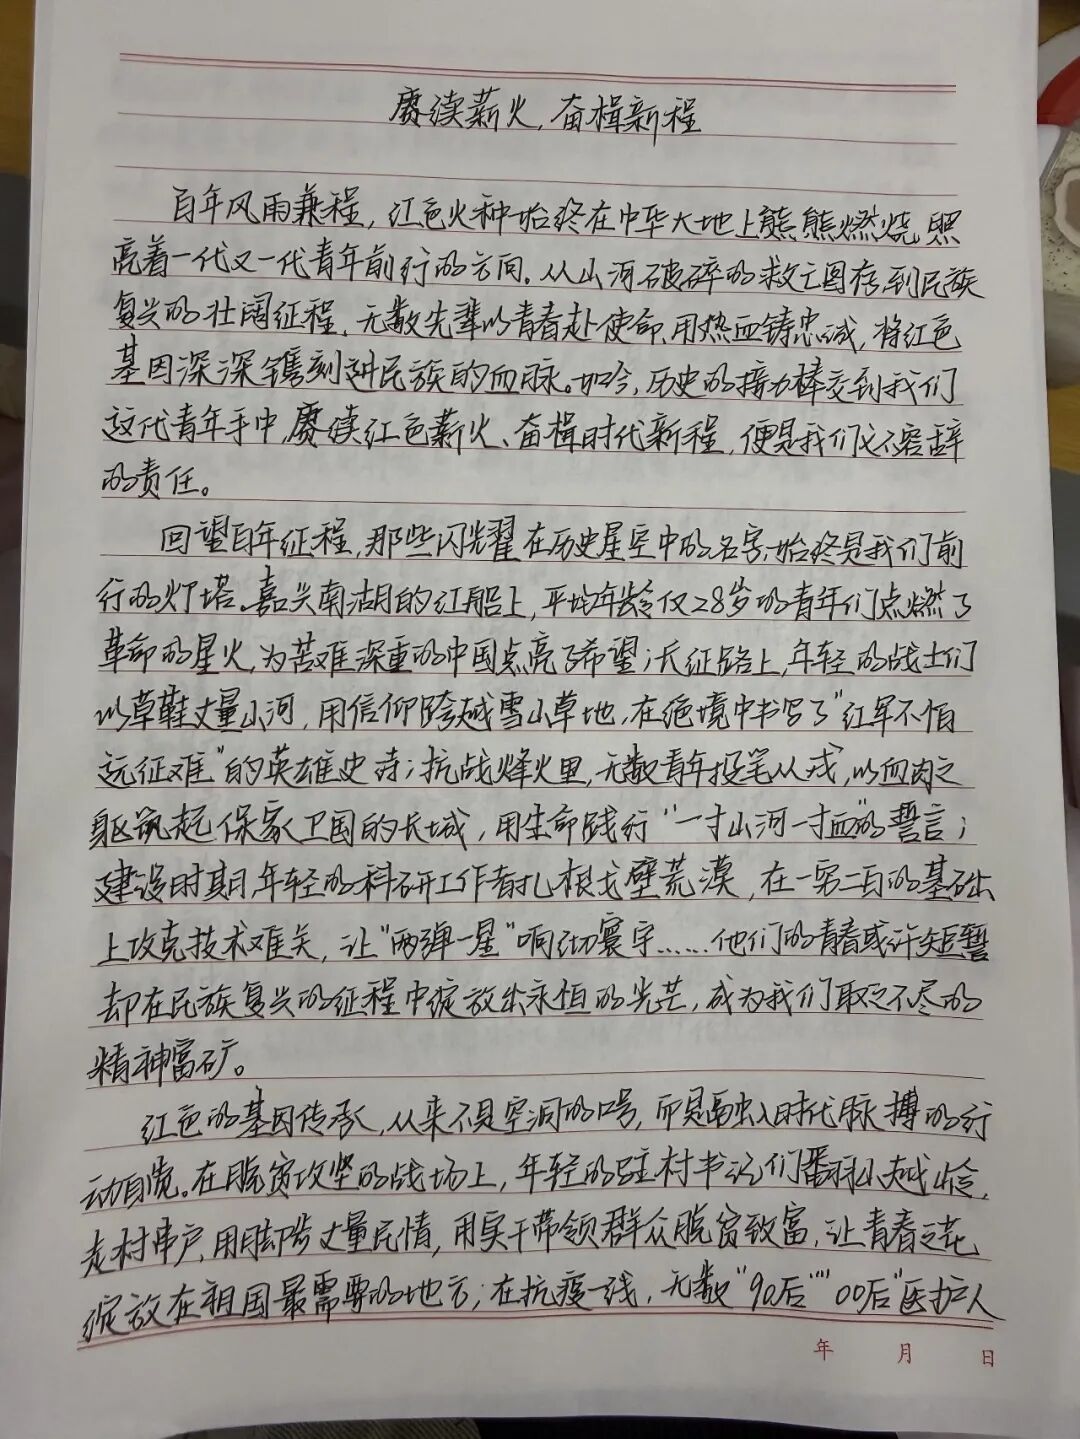 赓续薪火,奋楫新程
百年风雨兼程,红色火种始终在中华大地上熊熊燃烧,照
亮着一代又一代青年前行的方向。从山河破碎的救亡图存,到民族
复兴的壮阔征程,无数先辈以青春赴使命,用热血铸忠诚,将红色
基因深深镌刻进民族的血脉。如今,历史的接力棒交到我们
这代青年手中,赓续红色薪火、奋楫时代新程,便是我们义不容辞
的责任。
回望百年征程,那些闪耀在历史星空中的名字,始终是我们前
行的灯塔。嘉兴南湖的红船上,平均年龄仅28岁的青年们点燃了
革命的星火,为苦难深重的中国点亮了希望;长征路上,年轻的战士们
以草鞋丈量山河,用信仰跨越雪山草地,在绝境中书写了"红军不怕
远征难"的英雄史诗;抗战烽火里,无数青年投笔从戎,以血肉之
躯筑起保家卫国的长城,用生命践行"一寸山河一寸血"的誓言;
建设时期,年轻的科研工作者扎根戈壁荒漠,在一穷二白的基础
上攻克技术难关,让"两弹一星"响彻寰宇……他们的青春或许短暂
却在民族复兴的征程中绽放出永恒的光芒,成为我们取之不尽的
精神富矿。
红色的基因传承,从来不是空洞的口号,而是融入时代脉搏的行
动自觉。在脱贫攻坚的战场上,年轻的驻村书记们翻山越岭,
走村串户,用脚步丈量民情,用实干带领群众脱贫致富,让青春之花
绽放在祖国最需要的地方;在抗疫一线,无数"90后""00后"医护人
年 月 日